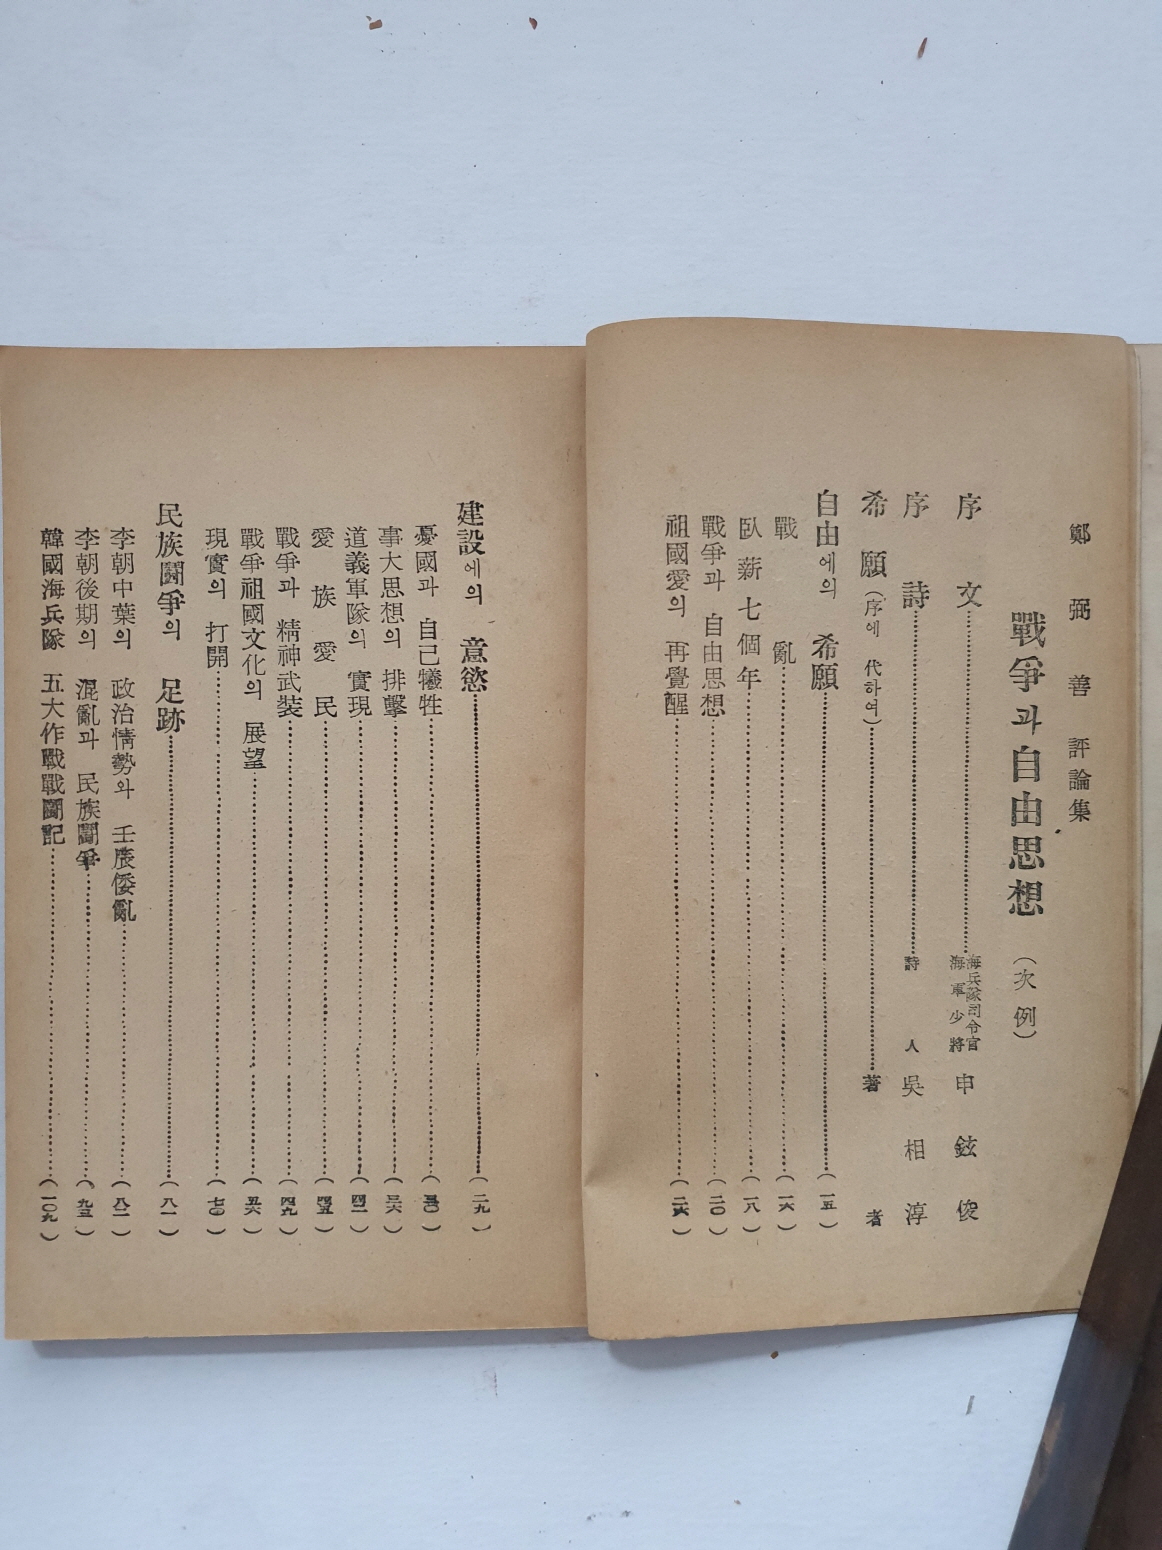 鄭弼善評論集
戰爭과 自由思想 (次例)
序文 海兵隊司令官 海軍少將 申鉉俊
序詩 詩人 吳相淳
希願(序에 代하여) 著者
自由에의 希願 (一五)
戰亂 (一六)
臥薪七個年 (一八)
戰爭과 自由思想 (二〇)
祖國愛의 再覺醒 (二六)
建設에의 意慾 (二九)
憂國과 自己犧牲 (三〇)
事大思想의 排擊 (三六)
道義軍隊의 實現 (四一)
愛族愛民 (四五)
戰爭과 精神武裝 (四九)
戰爭祖國文化의 展望 (五六)
現實의 打開 (七〇)
民族鬪爭의 足跡 (八一)
李朝中葉의 政治情勢와 壬辰倭亂 (八一)
李朝後期의 混亂과 民族鬪爭 (九五)
韓國海兵隊 五大作戰戰鬪記 (一〇九)